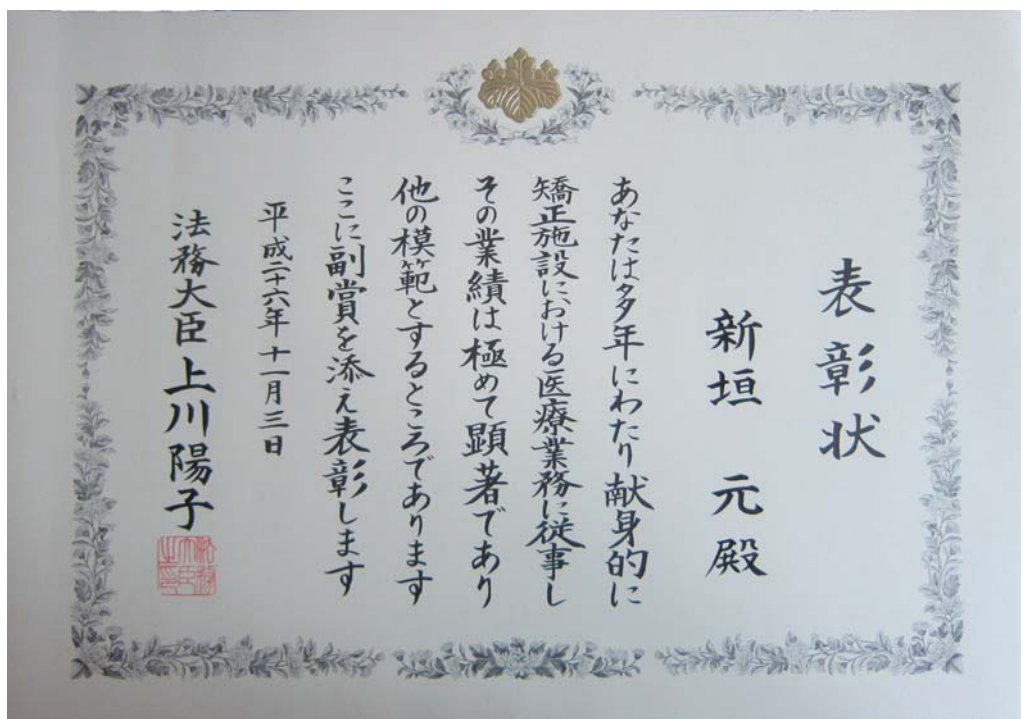 表彰状
新垣 元殿
あなたは多年にわたり献身的に
矯正施設における医療業務に従事し
その業績は極めて顕著であり
他の模範とするところであります
ここに副賞を添え表彰します
平成二十六年十一月三日
法務大臣 上川陽子
法務大臣之印